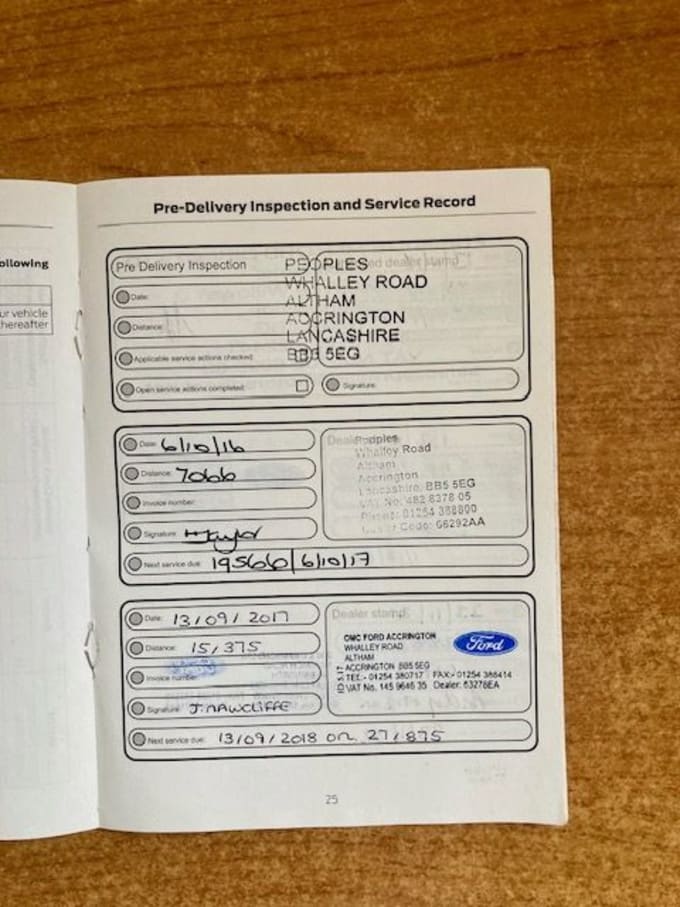 Pre-Delivery Inspection and Service Record
ollowing
ur vehicle
hereafter
Pre Delivery Inspection
dealer stamp
PEOPLES
WHALLEY ROAD
ALTHAM
ACCRINGTON
LANCASHIRE
BB5 5EG
Date:
Distance:
Applicable service actions checked:
Open service actions completed:
Signature:
Date: 6/10/16
Distance: 7066
Invoice number:
Signature:
Next service due: 19566/6/10/17
Peoples
Whalley Road
Altham
Accrington
Lancashire. BB5 5EG
VAT No: 482 8378 05
Phone: 01254 388800
Code: 66292AA
Date: 13/09/2017
Distance: 15,375
Invoice number:
Signature: J. RAWCLIFFE
Next service due: 13/09/2018 or 27,875
Dealer stamp
OMC FORD ACCRINGTON
WHALLEY ROAD
ALTHAM
ACCRINGTON BB5 5EG
TEL:- 01254 380717 FAX:- 01254 388414
VAT No. 145 9646 35 Dealer: 63276EA
Ford
25